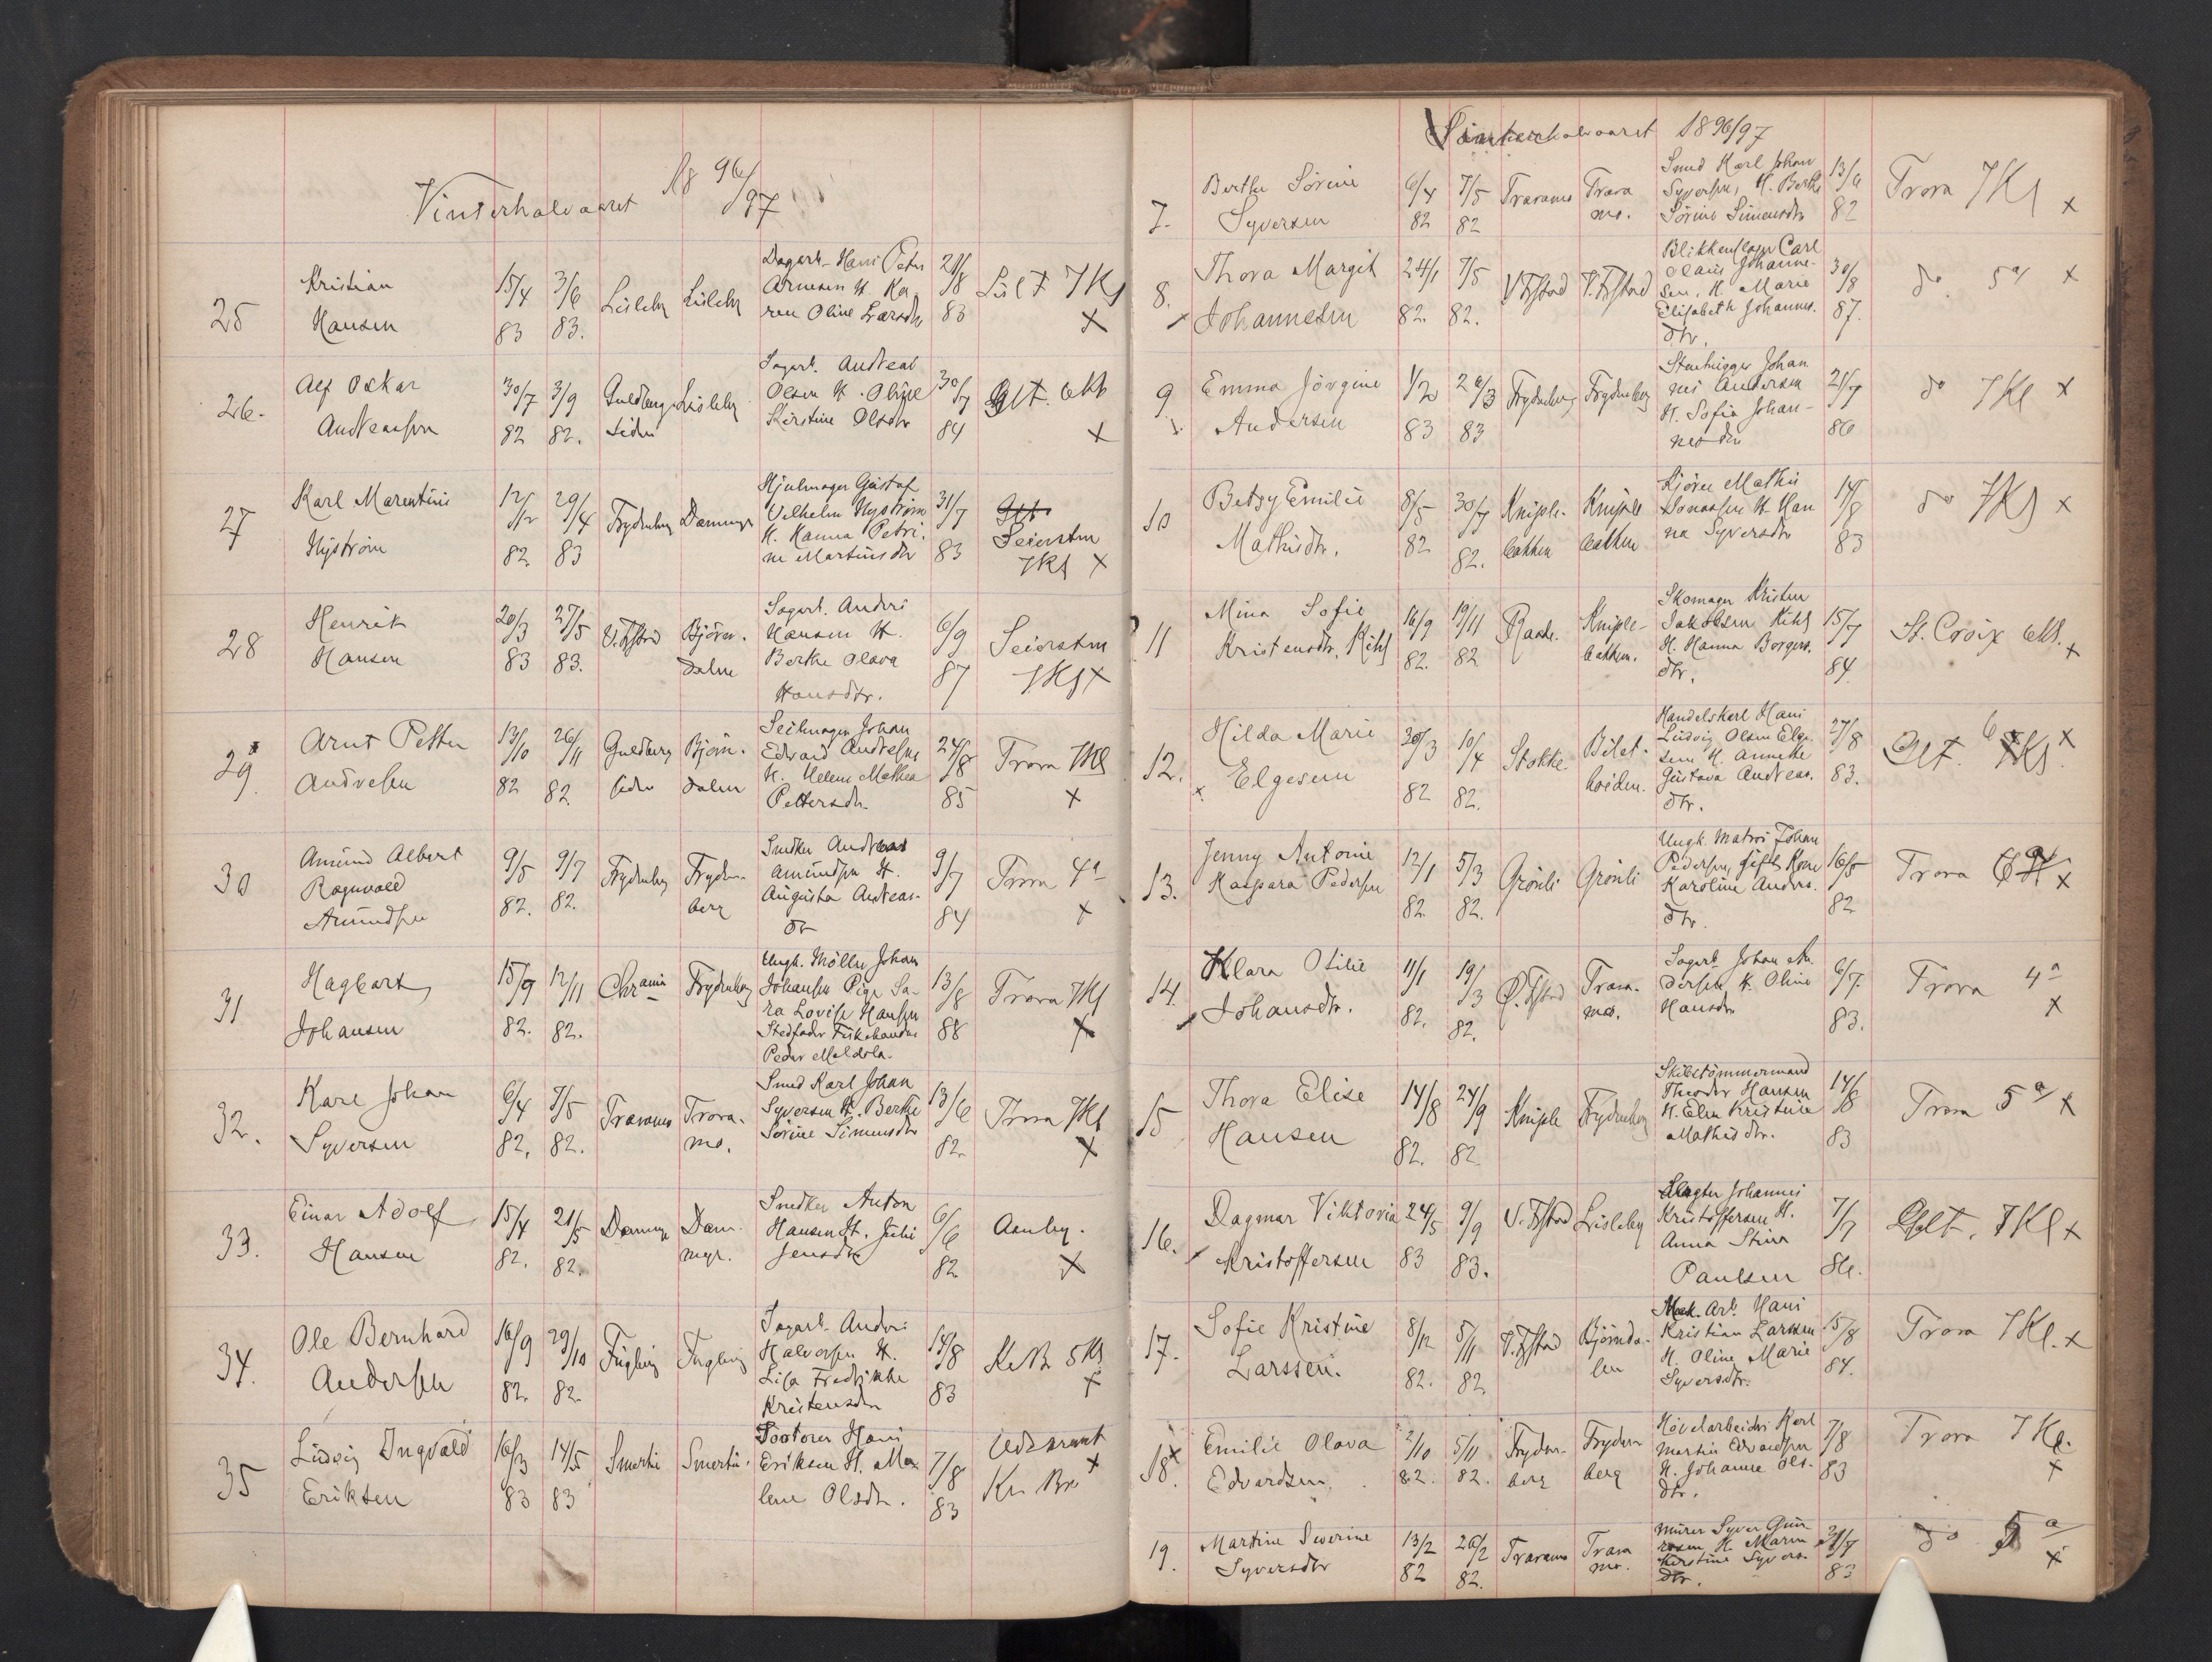 Vinterhalvaaret 18 96/97
25 Kristian Hansen 15/4 83 3/6 83. Lisleby Lisleby
Dagarb. Hans Peter
Arnesen H. Ka-
ren Oline Larsdtr
21/8 83 Lisl 7 Kl x
26. Alf Oskar Andreassen 30/7 82 3/9 82. Guldbergsiden Lisleby
Dagarb. Andreas
Olsen H. Oline
Kirstine Olsdtr
30/7 84 Glt. 6 Kl x
27 Karl Marentius Nystrøm 12/12 82 29/4 83 Frydenberg Dammyr
Hjulmager Gustaf
Vilhelm Nystrøm
H. Hanna Petri-
ne Martinsdtr
31/7 83 Seiersten 7 Kl x
28 Henrik Hansen 20/3 83 27/5 83. V. Fstad Bjørn-dalen
Sagarb. Anders
Hansen H.
Berthe Olava
Hansdtr.
6/9 87 Seiersten 7 Kl x
29. Arnt Petter Andresen 13/10 82 26/11 82 Guldbergsiden Bjørn-dalen
Seilmager Johan
Edvard Andresen
H. Helene Mathea
Pettersdtr.
24/8 85 Trara 7 Kl x
30 Amund Albert Ragnvald Amundsen 9/5 82. 9/7 82. Frydenberg Fryden-berg
Snedker Andreas
Amundsen H.
Augusta Andreas-
dtr
9/7 84 Trara 4a x
31 Hagbart Johansen 15/9 82. 12/11 82. Chrania Frydenberg
Ungk. Møller Johan
Johansen Pige Sa-
ra Lovise Hansen
Stedfader Fiskehandler
Peder
13/8 88 Trara 7 Kl x
32. Karl Johan Syversen 6/4 82, 7/5 82. Traramo Trara-mo.
Smed Karl Johan
Syversen H. Berthe
Sørine Simensdtr
13/6 82. Trara 7 Kl x
33. Einar Adolf Hansen 15/4 82. 21/5 82. Dammyr Dam-myr.
Snedker Anton
Hansen H. Julie
Jensdtr
6/6 82 Aanby. x
34. Ole Bernhard Andersen 16/9 82. 29/10 82. Fuglevig Fuglevig
Sagarb. Anders
Halvorsen H.
Lisa Fredrikke
Kristensdtr
14/8 83 Kr Br 5 Kl x
35 Ludvig Ingvald Eriksen 16/3 83 14/5 83 Smertu Smertu
Hans
Eriksen H. Ma-
lene Olsdtr.
7/8 83 Kr Br x
Vinterhalvaaret 1896/97
7. Berthe Sørine Syversen 6/4 82 7/5 82 Traramo Trara mo.
Smed Karl Johan
Syversen, H. Berthe
Sørine Simensdtr
13/6 82 Trara 7 Kl x
8. Thora Margit Johannesen 24/1 82. 7/5 82. V Fstad V. Fstad
Blikkenslager Carl
Olaus Johanne-
sen, H. Marie
Elisabeth Johannes-
dtr.
30/8 87. do 5a x
9 Emma Jørgine Andersen 1/12 83 26/3 83 Frydenberg Frydenberg
Stenhugger Johan
nes Andersen
H. Sofie Johan-
nesdtr
21/7 86 do 7 Kl x
10 Betsy Emilie Mathisdtr. 8/5 82 30/7 82. Kniple-bakken Kniple bakken
Kjører Mathis
Jonassen H. Han
na Syversdtr
14/8 83 do 7 Kl x
11 Mina Sofie Kristensdtr. Kihl 16/9 82. 19/11 82 Raade Kniple-bakken.
Skomager Kristen
Jakobsen Kihl
H. Hanna Borgers-
dtr.
15/7 84 St. Croix 6 Kl. x
12. Hilda Marie Elgesen 30/3 82 10/4 82. Stokke
Handelskarl Hans
Ludvig Olsen Elge-
sen H. Annette
Gustava Andreas-
dtr.
27/8 83. Glt. 6 Kl. x
13. Jenny Antonie Kaspara Pedersen 12/1 82. 5/3 82. Grønli Grønli
Ungk. Matros Johan
Pedersen, gift Kone
Karoline Anders-
dtr.
16/5 82 Trara x
14. Klara Otilie Johansdtr. 11/1 82. 19/3 82. Ø. Fstad Trara-mo.
Sagarb. Johan An-
dersen H. Oline
Hansdtr
6/7. 83. Trara 4a x
15 Thora Elise Hansen 14/8 82. 24/9 82 Kniple Frydenberg
Skibstømmermand
Theodor Hansen
H. Elen Kristine
Mathisdtr.
14/8 83 Trara 5a x
16. Dagmar Viktoria Kristoffersen 24/5 83 9/9 83. V. Fstad Lisleby
Slagter Johannes
Kristoffersen H.
Anna Stina
Paulsen
7/7 86. Glt. 7 Kl x
17. Sofie Kristine Larssen. 8/12 82. 5/11 82. V. Fstad Bjørnda-len
Mek. Arb. Hans
Kristian Larssen
H. Oline Marie
Syversdtr.
15/8 84. Trara 7 Kl. x
18. x Emilie Olava Edvardsen. 2/10 82. 5/11 82. Fryden-berg Frydenberg
Høvelarbeider Karl
Martin Edvardsen
H. Johanne Ols-
dtr.
7/8 83 Trara 7 Kl. x
19. Martine Severine Syversdtr 13/2 82 26/2 82. Traramo Trara mo.
Murer Syver Gun
H. Maren
Kirstine Syvers-
dtr.
31/7 83 do 5a x